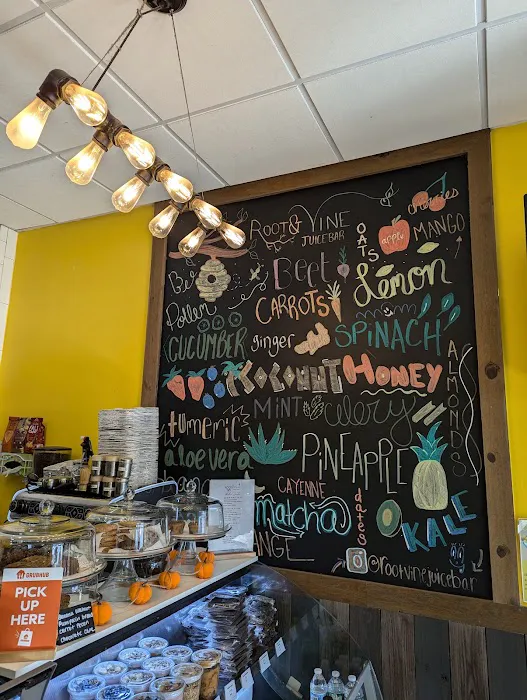 ROOT & VINE
JUICEBAR
OATS
apple
cherries
MANGO
Bee
Pollen
Beet
Lemon
CARROTS
CUCUMBER
ginger
SPINACH
COCONUT HONEY
MINT
celery
ALMONDS
tumeric
aloe vera
PINEAPPLE
CAYENNE
matcha
dates
KALE
@rootvinejuicebar
GRUBHUB
PICK
UP
HERE